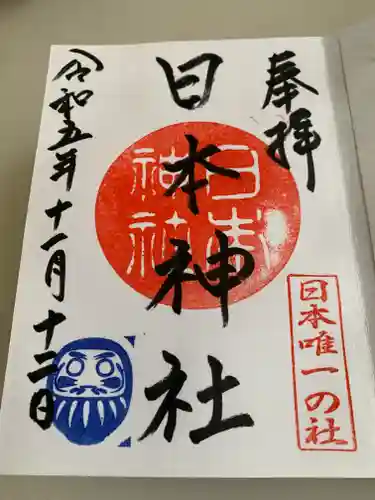 奉拝
日本神社
日本
神社
日本唯一の社
令和五年十一月十二日